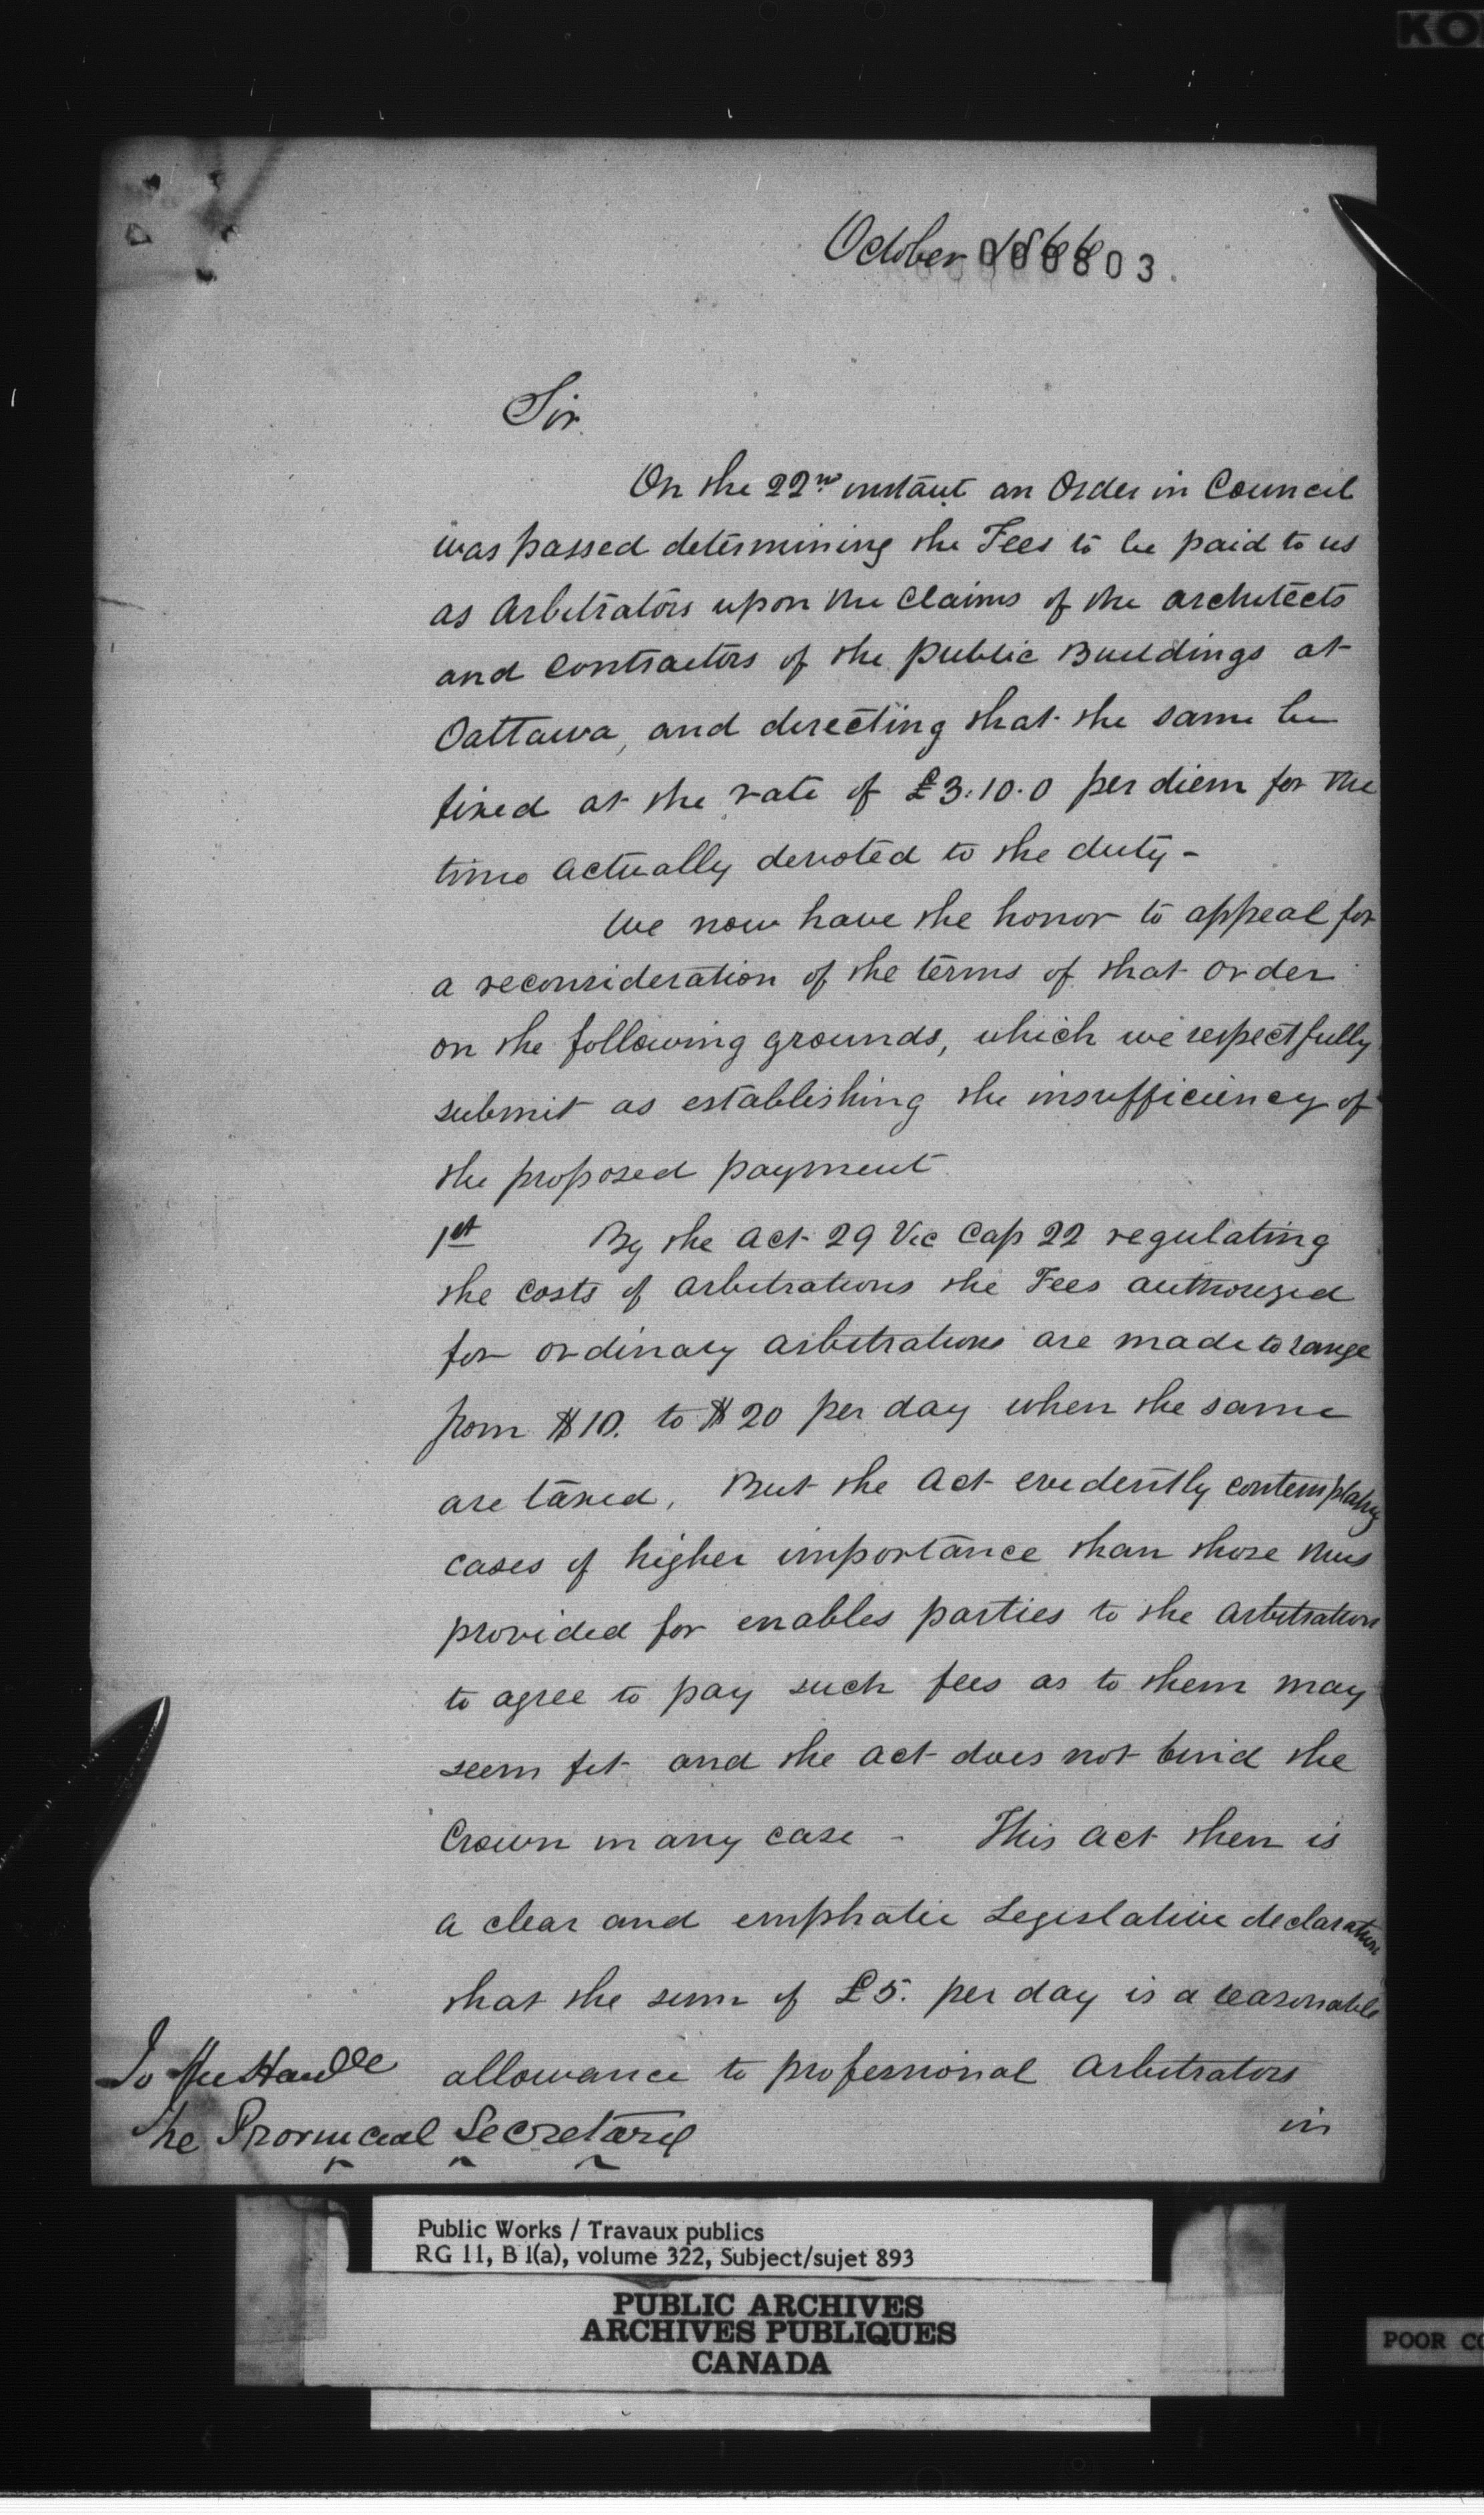 KO
October 1866
000803
Sir
On the 22nd instant an Order in Council
was passed determining the Fees to be paid to us
as Arbitrators upon the Claims of the architects
and Contractors of the Public Buildings at
Oattawa, and directing that the same be
fixed at the rate of £3.10.0 per diem for the
time actually devoted to the duty -
We now have the honor to appeal for
a reconsideration of the terms of that order
on the following grounds, which we respectfully
submit as establishing the insufficiency of
the proposed payment
1st By the Act 29 Vic Cap 22 regulating
the costs of Arbitrations the Fees authorized
for ordinary arbitrations are made to range
from $10. to $20 per day when the same
are taxed, But the Act evidently contemplating
cases of higher importance than those thus
provided for enables parties to the Arbitration
to agree to pay such fees as to them may
seem fit and the act does not bind the
Crown in any case - This Act then is
a clear and emphatic Legislative declaration
that the sum of £5. per day is a reasonable
allowance to professional Arbitrators
in
To the Honble
The Provincial Secretary
Public Works / Travaux publics
RG 11, B 1(a), volume 322, Subject/sujet 893
PUBLIC ARCHIVES
ARCHIVES PUBLIQUES
CANADA
POOR CO